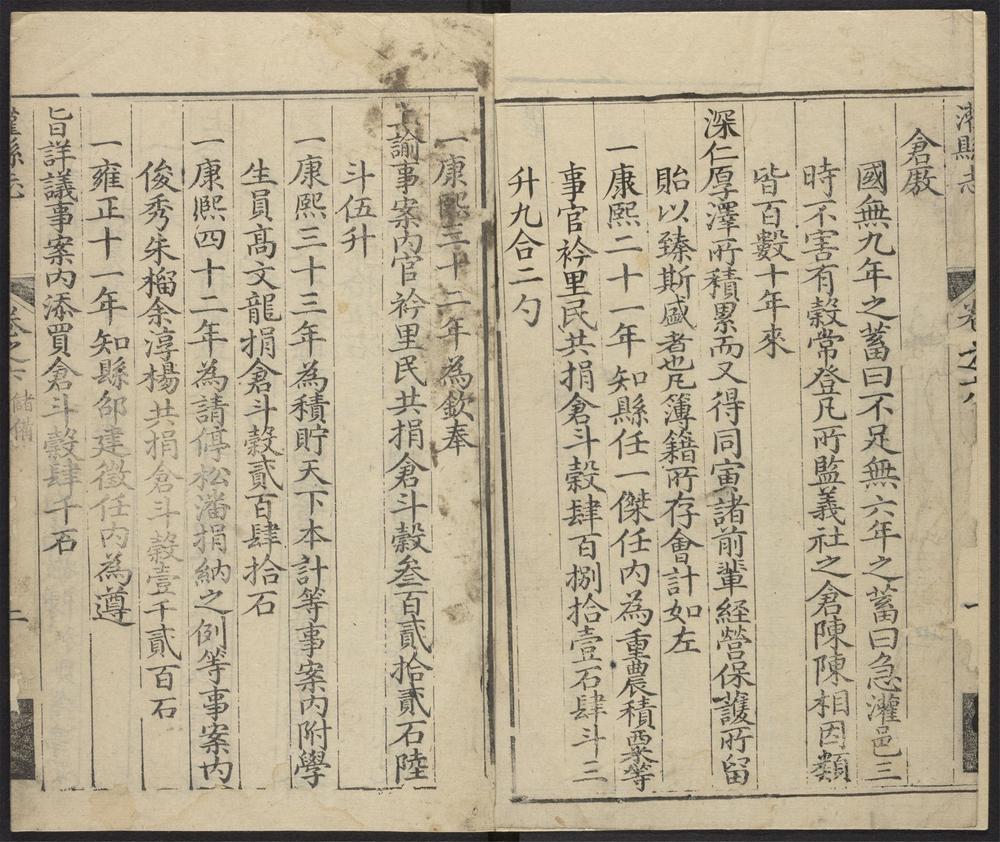 灌縣志
卷之六
一
倉厫
國無九年之蓄曰不足無六年之蓄曰急灌邑三
時不害有穀常登凡所監義社之倉陳陳相因類
皆百數十年來
深仁厚澤所積累而又得同寅諸前輩經營保護所留
貽以臻斯盛者也凡簿籍所存會計如左
一康熙二十一年知縣任一傑任內為重農積粟等
事官衿里民共捐倉斗穀肆百捌拾壹石肆斗三
升九合二勺
一康熙三十二年為欽奉
上諭事案內官衿里民共捐倉斗穀叁百貳拾貳石陸
斗伍升
一康熙三十三年為積貯天下本計等事案內附學
生員高文龍捐倉斗穀貳百肆拾石
一康熙四十二年為請停松潘捐納之例等事案內
俊秀朱榴余淳楊共捐倉斗穀壹千貳百石
一雍正十一年知縣邵建徵任內為遵
旨詳議事案內添買倉斗穀肆千石
灌縣志
卷之六 儲備
二